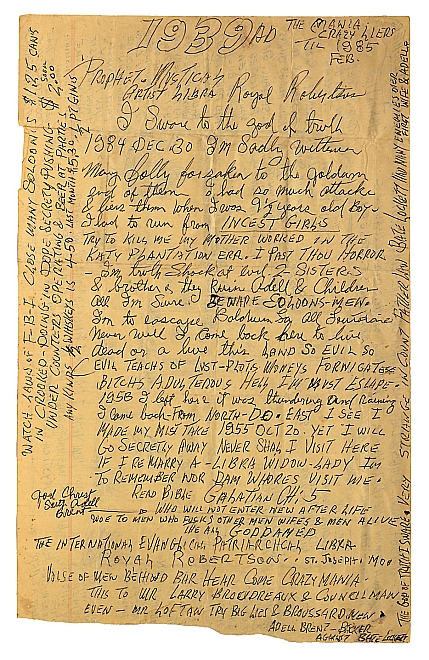 1939 AD
THE MANIA
CRAZY LIERS
TIL 1985
FEB.
PROPHET. MYSTICAL
ARTIST LIBRA Royal Robertson
I Swore to the god of truth
1984 DEC. 30 I'm Sadly Wittener
Many Solly forsaken to the
end of them I had so much attacke
& liers them when I was 9 years old Boy
I had to run from INCEST GIRLS
TRY TO KILL ME MY MOTHER WORKED IN THE
KATY PLANTATION ERA. I PAST THOU HORROR
- I'm truth Shock at evil 2 SISTERS
& brother & they Ruin Adell & Children
All I'm Sure BEWARE SOLOONS-MEN.
I'm to eascape Baldwin, La, All Louisiana
Never will I come back here to live
dead or a live this LAND SO EVIL SO
EVIL TEACHS OF LUST-PLOTS MONEYS FORNIGATES
BITCHS ADULTEROUS HELP I'M MUST ESCAPE-
1958 I left here it was thundering and Raining
I came back-from NORTH-DO-EAST I SEE I
MADE MY MISTAKE 1955 OCT 20. YET I WILL
GO SECRETLY AWAY NEVER SHALL I VISIT HERE
IF I REMARRY A - LIBRA WIDOW-LADY I'M
TO REMEMBER NOR DAM WHORES VISIT ME.
READ BIBLE GALATIAN CH. 5
God Christ
Sent Adell
Brent
WHO WILL NOT ENTER NEW AFTER LIFE
WOE TO MEN WHO FUCKS OTHER MEN WIFES & MEN ALIVE
THE ALL GODDAMED
THE INTERNATIONAL EVANGELICAL PATRIARCHCAL LIBRA
ROYAL ROBERTSON. ST. JOSEPH. MOO
VALSE OF MEN BEHIND BAR HEAR COME CRAZY MANIA.
THIS TO MR LARRY BROUDREAUX & COUNCILMAN
EVEN - MR LOFTAW TRY BIG LIES & BROUSSARD.MEN
ADELL BRENT - BAKER
AGAINST
WATCH LAWS OF F-B-I CLOSE MANY SOLOONS $1.25 CANS
IN CROOKED-DOING-IN DOPE SECRETY PUSHING. $2.00
UNDER COUNTER OPERATING & BEER AT PARTIES
ANY KINDS & WHISKEY IS 4.50. LAST MONTH $5.30 PTS GINS
THE GOD OF TRUTH I SWORE. VERY STRIANGE IN COUNT FATHER LAW
FIRST WIFE & ADELL